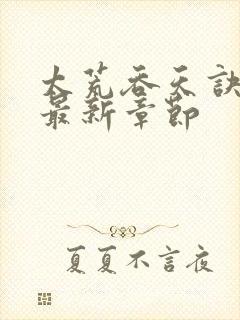 大荒吞天訣
最新章節
夏夏不言夜